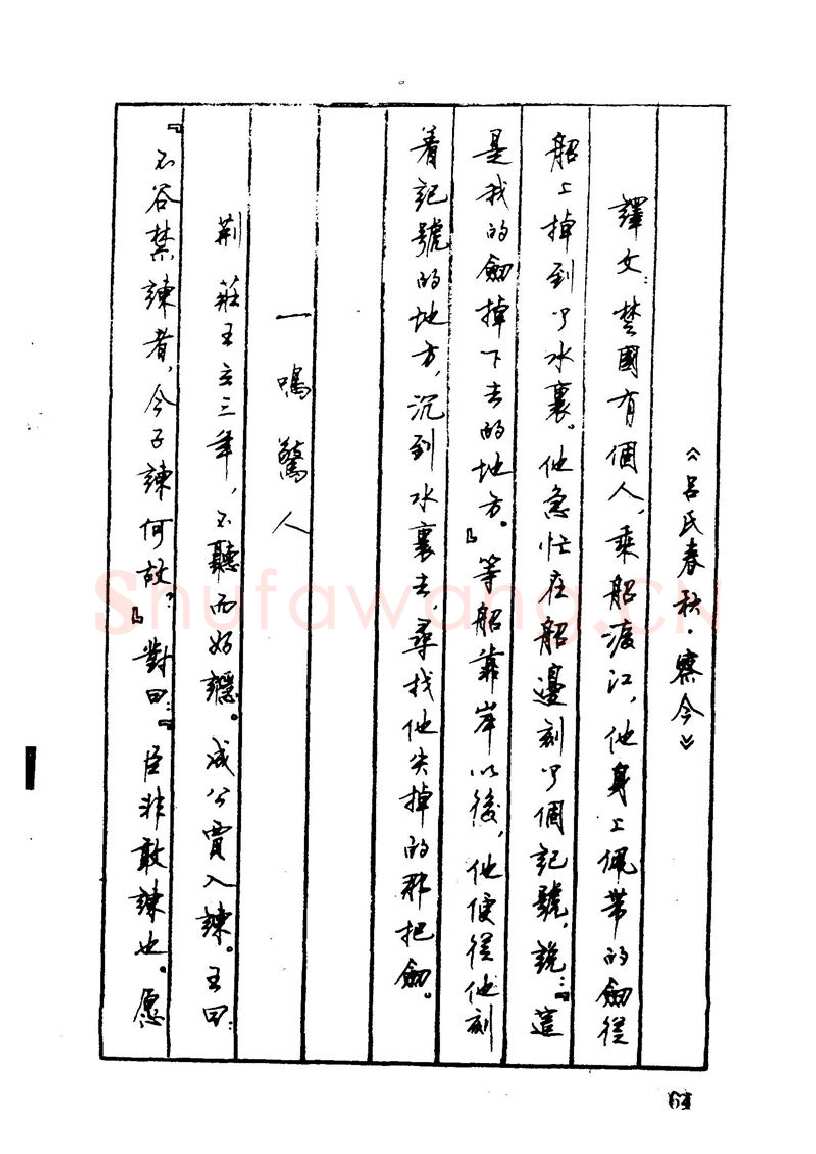 《吕氏春秋·察今》
譯文：楚國有個人，乘船渡江，他身上佩帶的劍從
船上掉到了水裏。他急忙在船邊刻了個記號，説：『這
是我的劍掉下去的地方。』等船靠岸以後，他便從他刻
着記號的地方，沉到水裏去，尋找他失掉的那把劍。
一鳴驚人
荆莊王立三年，不聽而好讔。成公賈入諫。王曰：
『不谷禁諫者，今子諫何故？』對曰：『臣非敢諫也。愿
Shufawang.CN
64